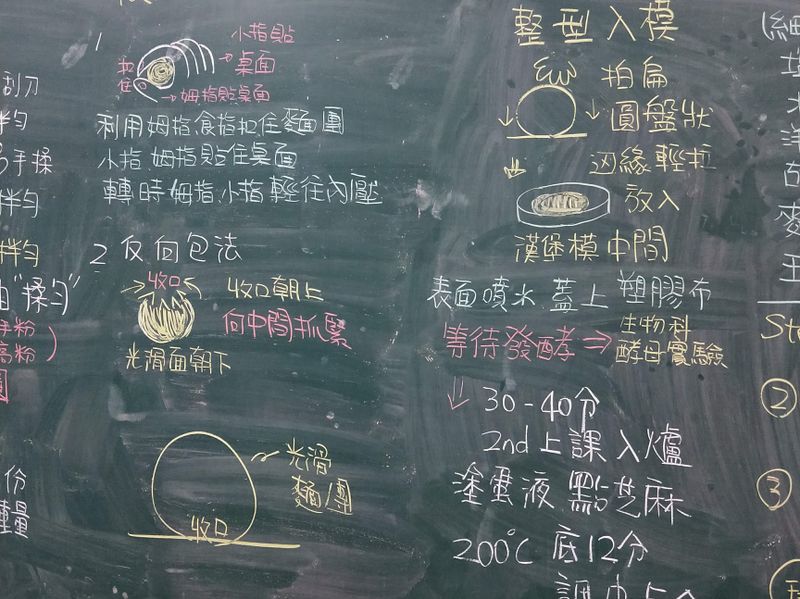 刮刀
拌勻
手揉
拌勻
拌勻
"揉勻"
手粉
高粉)
圓
份
重量
1
小指貼
桌面
扣住
→姆指貼桌面
利用姆指食指扣住麵團
小指.姆指貼住桌面
轉時姆指.小指輕往內壓
2 反向包法
收口
收口朝上
向中間抓緊
光滑面朝下
光滑
麵團
收口
整型入模
拍扁
圓盤狀
边緣輕拉
放入
漢堡模中間
表面噴水.蓋上塑膠布
等待發酵⇒生物科
酵母實驗
30-40分
2nd上課入爐
塗蛋液點芝麻
200℃ 底12分
(細
水
洋
麥
王
②
③